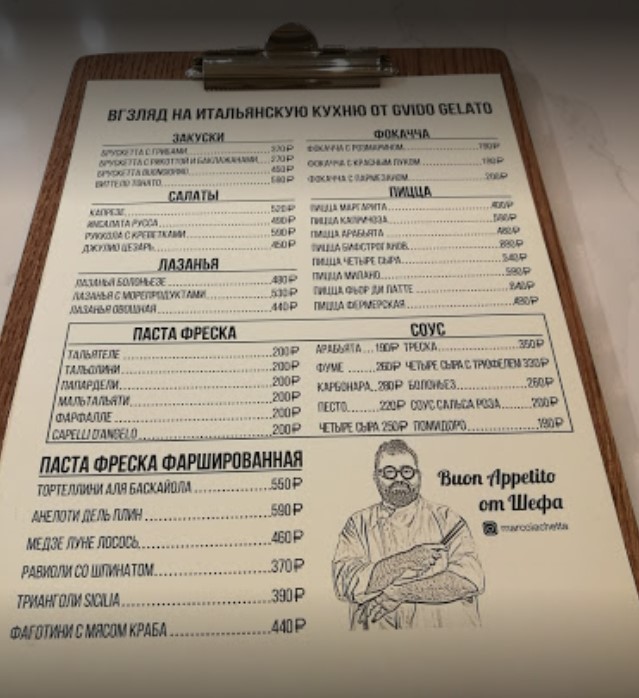 ВГЗЛЯД НА ИТАЛЬЯНСКУЮ КУХНЮ ОТ GVIDO GELATO
ЗАКУСКИ
БРУСКЕТТА С ГРИБАМИ
БРУСКЕТТА С РИКОТТОЙ И БАКЛАЖАНАМИ 270₽
БРУСКЕТТА BUONGIORNO 450₽
ВИТТЕЛО ТОНАТО
САЛАТЫ
КАПРЕЗЕ 520₽
ИНСАЛАТА РУССА 490₽
РУККОЛА С КРЕВЕТКАМИ 590₽
ДЖУЛИО ЦЕЗАРЬ 450₽
ЛАЗАНЬЯ
ЛАЗАНЬЯ БОЛОНЬЕЗЕ 490₽
ЛАЗАНЬЯ С МОРЕПРОДУКТАМИ 530₽
ЛАЗАНЬЯ ОВОЩНАЯ 440₽
ФОКАЧЧА
ФОКАЧЧА С РОЗМАРИНОМ
ФОКАЧЧА С КРАСНЫМ ЛУКОМ
ФОКАЧЧА С ПАРМЕЗАНОМ
ПИЦЦА
ПИЦЦА МАРГАРИТА
ПИЦЦА КАПРИЧОЗА
ПИЦЦА АРАБЬЯТА
ПИЦЦА БИФСТРОГАНОВ
ПИЦЦА ЧЕТЫРЕ СЫРА
ПИЦЦА МИЛАНО
ПИЦЦА ФЬОР ДИ ЛАТТЕ
ПИЦЦА ФЕРМЕРСКАЯ
ПАСТА ФРЕСКА
ТАЛЬЯТЕЛЕ 200₽
ТАЛЬОЛИНИ 200₽
ПАПАРДЕЛИ 200₽
МАЛЬТАЛЬЯТИ 200₽
ФАРФАЛЛЕ 200₽
CAPELLI D'ANGELO 200₽
СОУС
АРАБЬЯТА 190₽ ТРЕСКА 350₽
ФУМЕ 260₽ ЧЕТЫРЕ СЫРА С ТРЮФЕЛЕМ 330₽
КАРБОНАРА 280₽ БОЛОНЬЕЗ 260₽
ПЕСТО 220₽ СОУС САЛЬСА РОЗА 200₽
ЧЕТЫРЕ СЫРА 250₽ ПОМИДОРО 190₽
ПАСТА ФРЕСКА ФАРШИРОВАННАЯ
ТОРТЕЛЛИНИ АЛЯ БАСКАЙОЛА 550₽
АНЕЛОТИ ДЕЛЬ ПЛИН 590₽
МЕДЗЕ ЛУНЕ ЛОСОСЬ 460₽
РАВИОЛИ СО ШПИНАТОМ 370₽
ТРИАНГОЛИ SICILIA 390₽
ФАГОТИНИ С МЯСОМ КРАБА 440₽
Buon Appetito
от Шефа
marcoiachetta